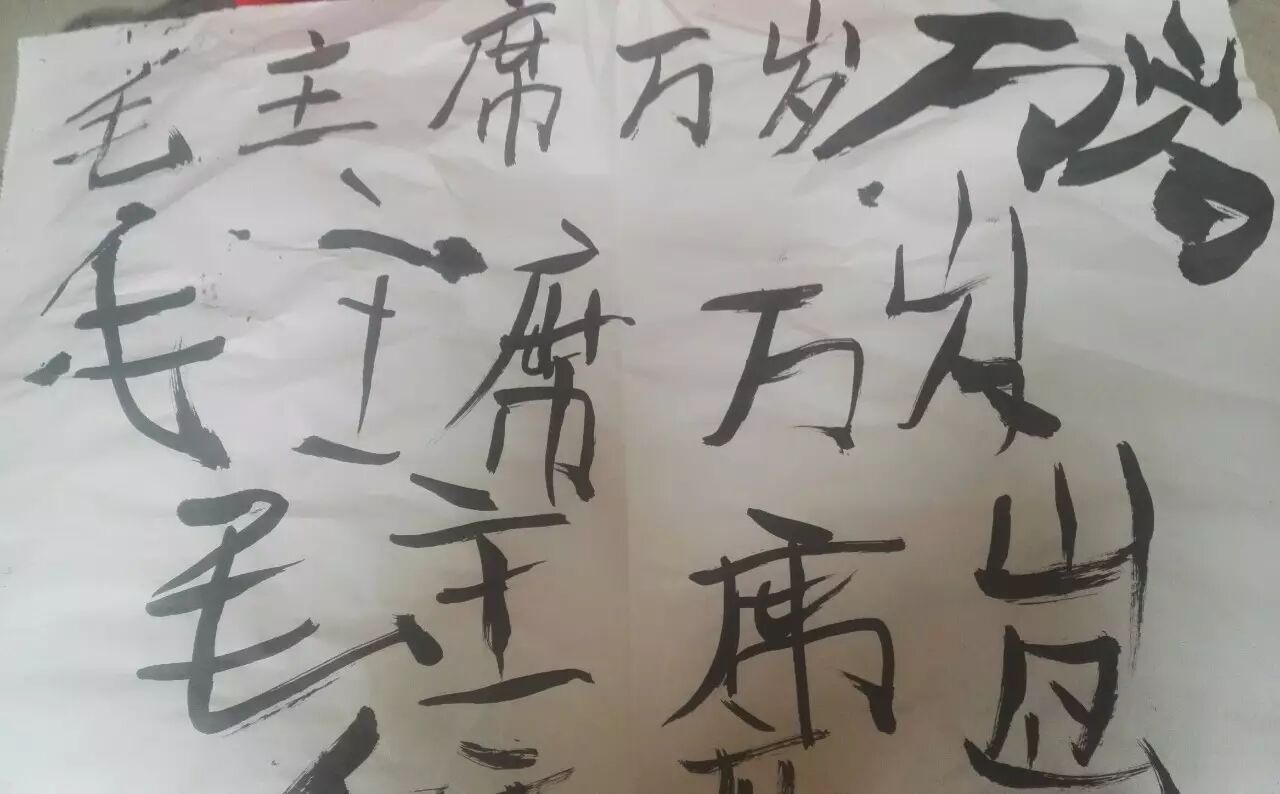 毛主席万岁万岁
毛主席万岁
毛主席岁